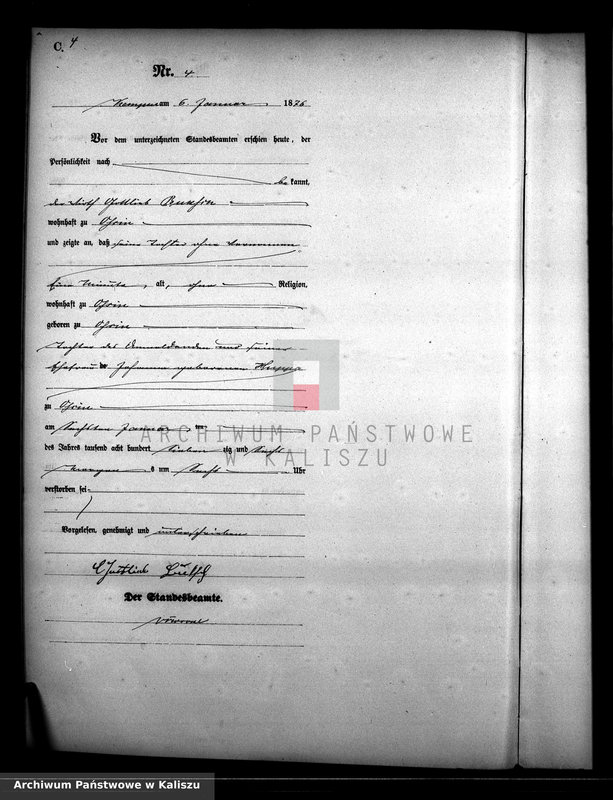 C. 4
Nr. 4
Kempen am 6. Januar 1876
Vor dem unterzeichneten Standesbeamten erschien heute, der
Persönlichkeit nach
be kannt,
der Gottlieb
wohnhaft zu
und zeigte an, daß seine Tochter ohne Vornamen
Eine Minute, alt, ohne Religion,
wohnhaft zu
geboren zu
Tochter des Anmeldenden und seiner
Ehefrau Johanna geborenen
zu
am sechsten Januar
des Jahres tausend acht hundert sieben zig und sechs
Morgens um sechs Uhr
verstorben sei
Vorgelesen, genehmigt und unterschrieben
Gottlieb
Der Standesbeamte.
ARCHIWUM PAŃSTWOWE
W KALISZU
Archiwum Państwowe w Kaliszu